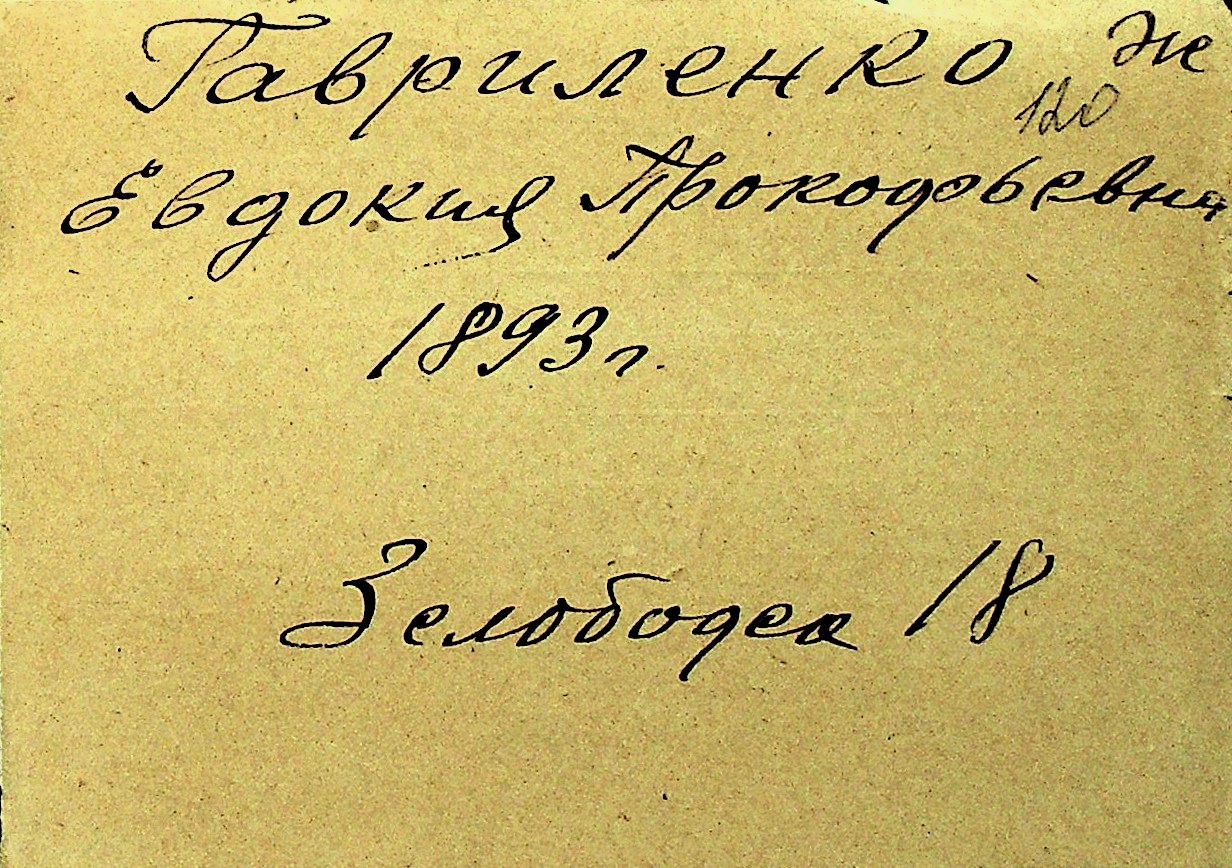 Гавриленко Ж
120
Евдокия Прокофьевна
1893г.
Зелободса 18